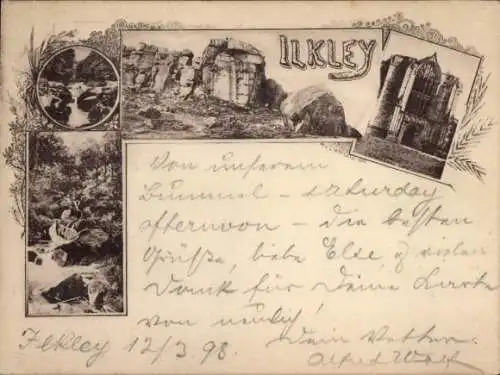 ILKLEY
Von unserem
Bummel – saturday
afternoon – die besten
Grüße, liebe Else & vielen
Dank für Deine Karte
von neulich!
Dein Vetter
Ilkley 12/3 98. Alfred